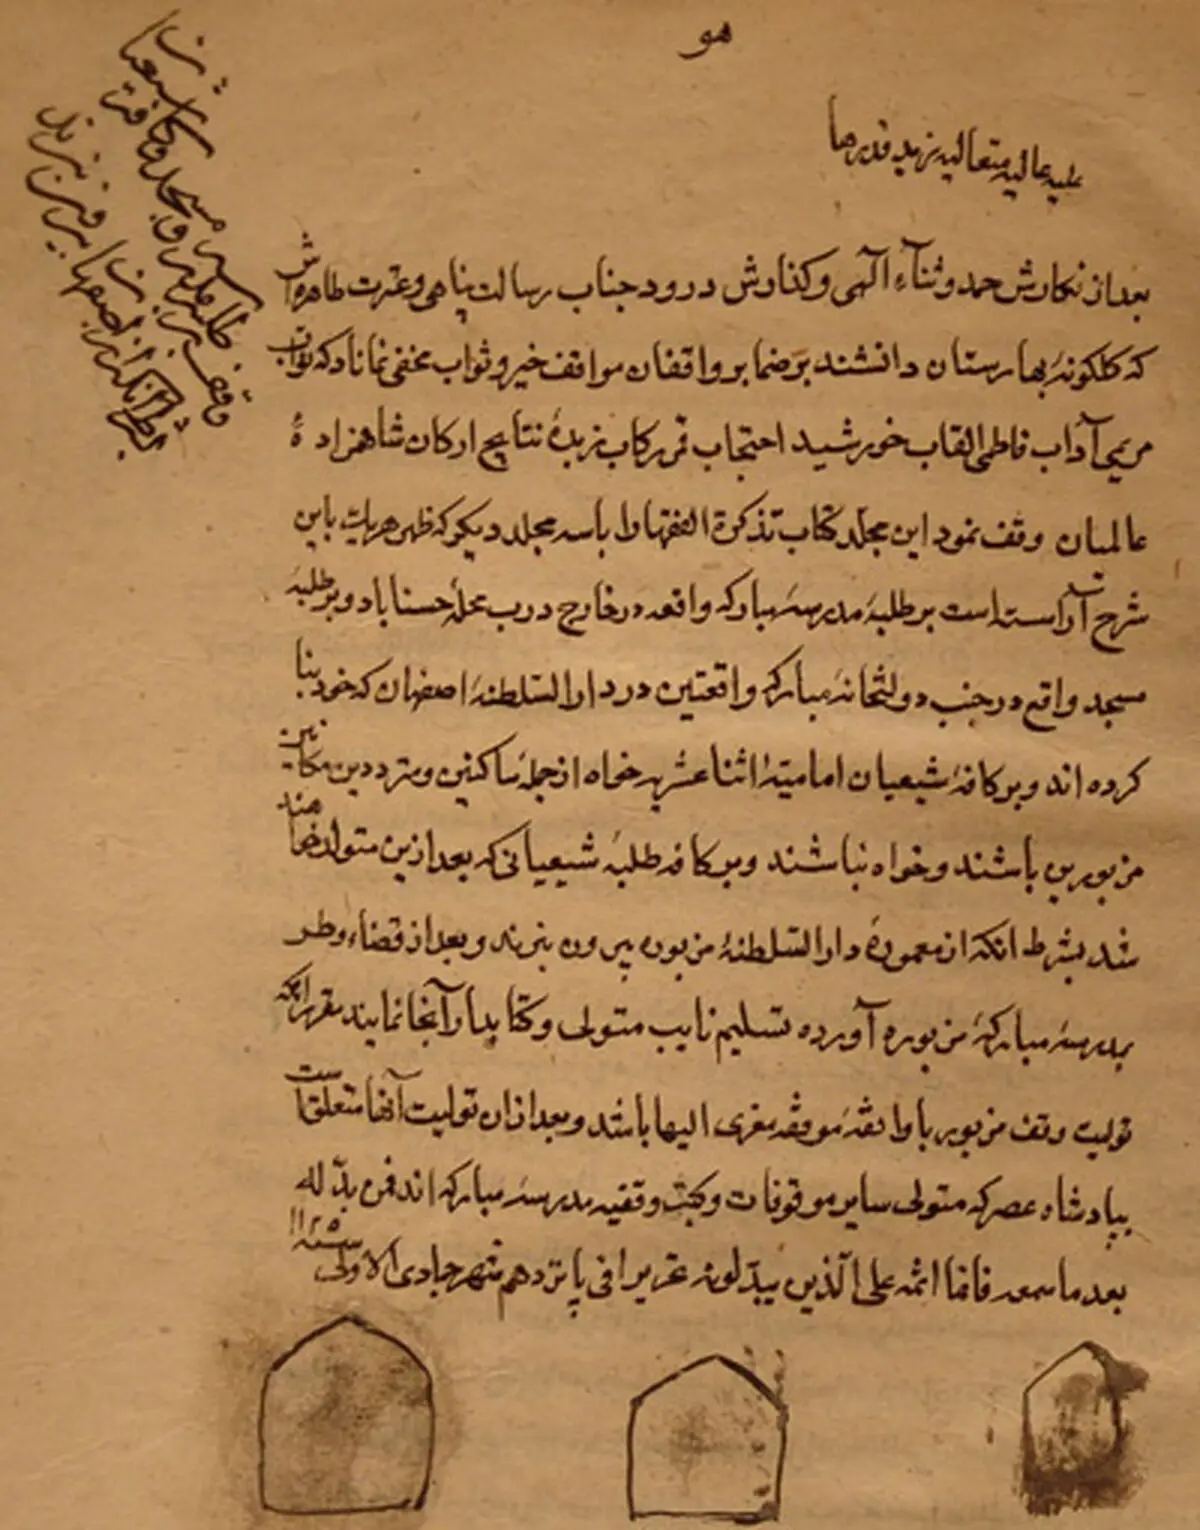 هو
علیه عالیه متعالیه زید قدرها
بعد از نگارش حمد و ثناء الهی و گذارش درود جناب رسالت پناهی و عترت طاهره اش
که گلگونهٔ بهارستان دانشند بر ضمایر واقفان مواقف خیر و ثواب مخفی نماناد که نواب
مریمی آداب فاطمی القاب خورشید احتجاب قمر رکاب زبدهٔ نتایج ارکان شاهزادهٔ
عالمیان وقف نمود این مجلد کتاب تذکرة الفقها را با سه مجلد دیگر که ظهر هریک باین
شرح آراسته است بر طلبهٔ مدرسهٔ مبارکه واقعه در خارج درب محلهٔ حسناباد و بر طلبهٔ
مسجد واقع در جنب دولتخانهٔ مبارکه واقعتین در دارالسلطنهٔ اصفهان که خود بنا
کرده اند و بر کافهٔ شیعیان امامیهٔ اثنا عشریه خواه از جملهٔ ساکنین و مترددین مکانین
مزبورین باشند و خواه نباشند و بر کافه طلبهٔ شیعیانی که بعد ازین متولد خواهند
شد بشرط انکه از معمورهٔ دارالسلطنهٔ مزبوره بیرون نبرند و بعد از قضاء وطر
بمدرسهٔ مبارکهٔ مزبوره آورده تسلیم نایب متولی و کتابدار آنجا نمایند مقرر آنکه
تولیت وقف مزبور با واقفهٔ موفقه معزی الیها باشد و بعد از ان تولیت آنها متعلق است
بپادشاه عصر که متولی سایر موقوفات و کتب وقفیه مدرسهٔ مبارکه اند فمن بدّله
بعد ما سمعه فانما اثمه علی الّذین یبدّلونه تحریرا فی پانزدهم شهر جمادی الاولی سنه ۱۱۲۵